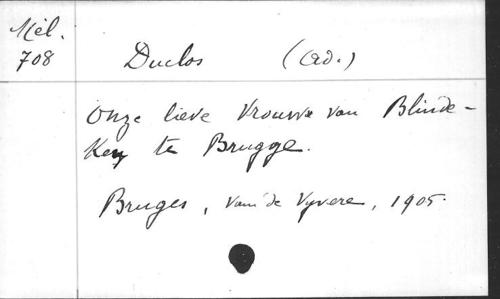 Mél.
708
Duclos (Ad.)
Onze lieve Vrouwe van Blinde-
Key te Brugge.
Bruges, Van de Vyvere, 1905.